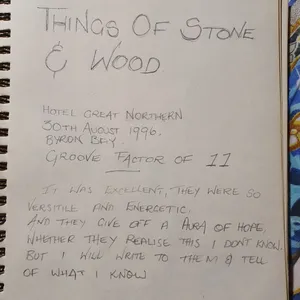 THINGS OF STONE
& WOOD
HOTEL GREAT NORTHERN
30TH AUGUST 1996.
BYRON BAY.
GROOVE FACTOR OF 11
IT WAS EXCELLENT, THEY WERE SO
VERSITLE AND ENERGETIC.
AND THEY GIVE OFF A AURA OF HOPE.
WHETHER THEY REALISE THIS I DON'T KNOW.
BUT I WILL WRITE TO THEM & TELL
OF WHAT I KNOW